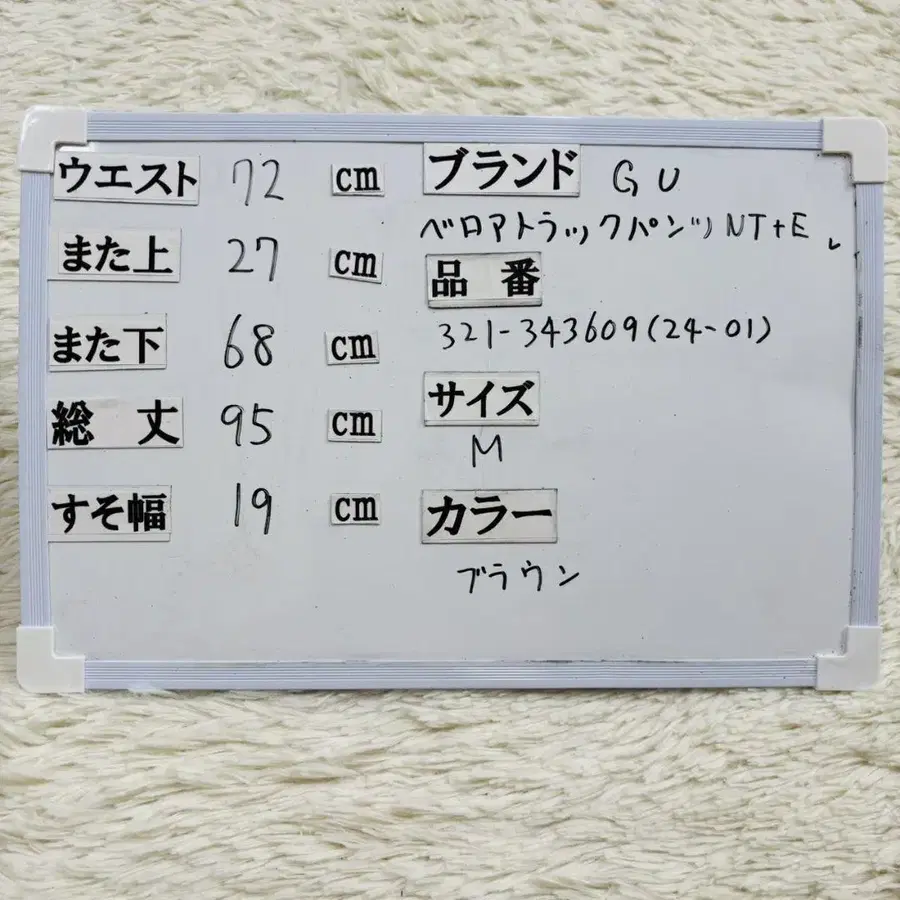 ウエスト 72 cm
また上 27 cm
また下 68 cm
総丈 95 cm
すそ幅 19 cm
ブランド GU
ベロアトラックパンツNT+E
品番
321-343609(24-01)
サイズ
M
カラー
ブラウン